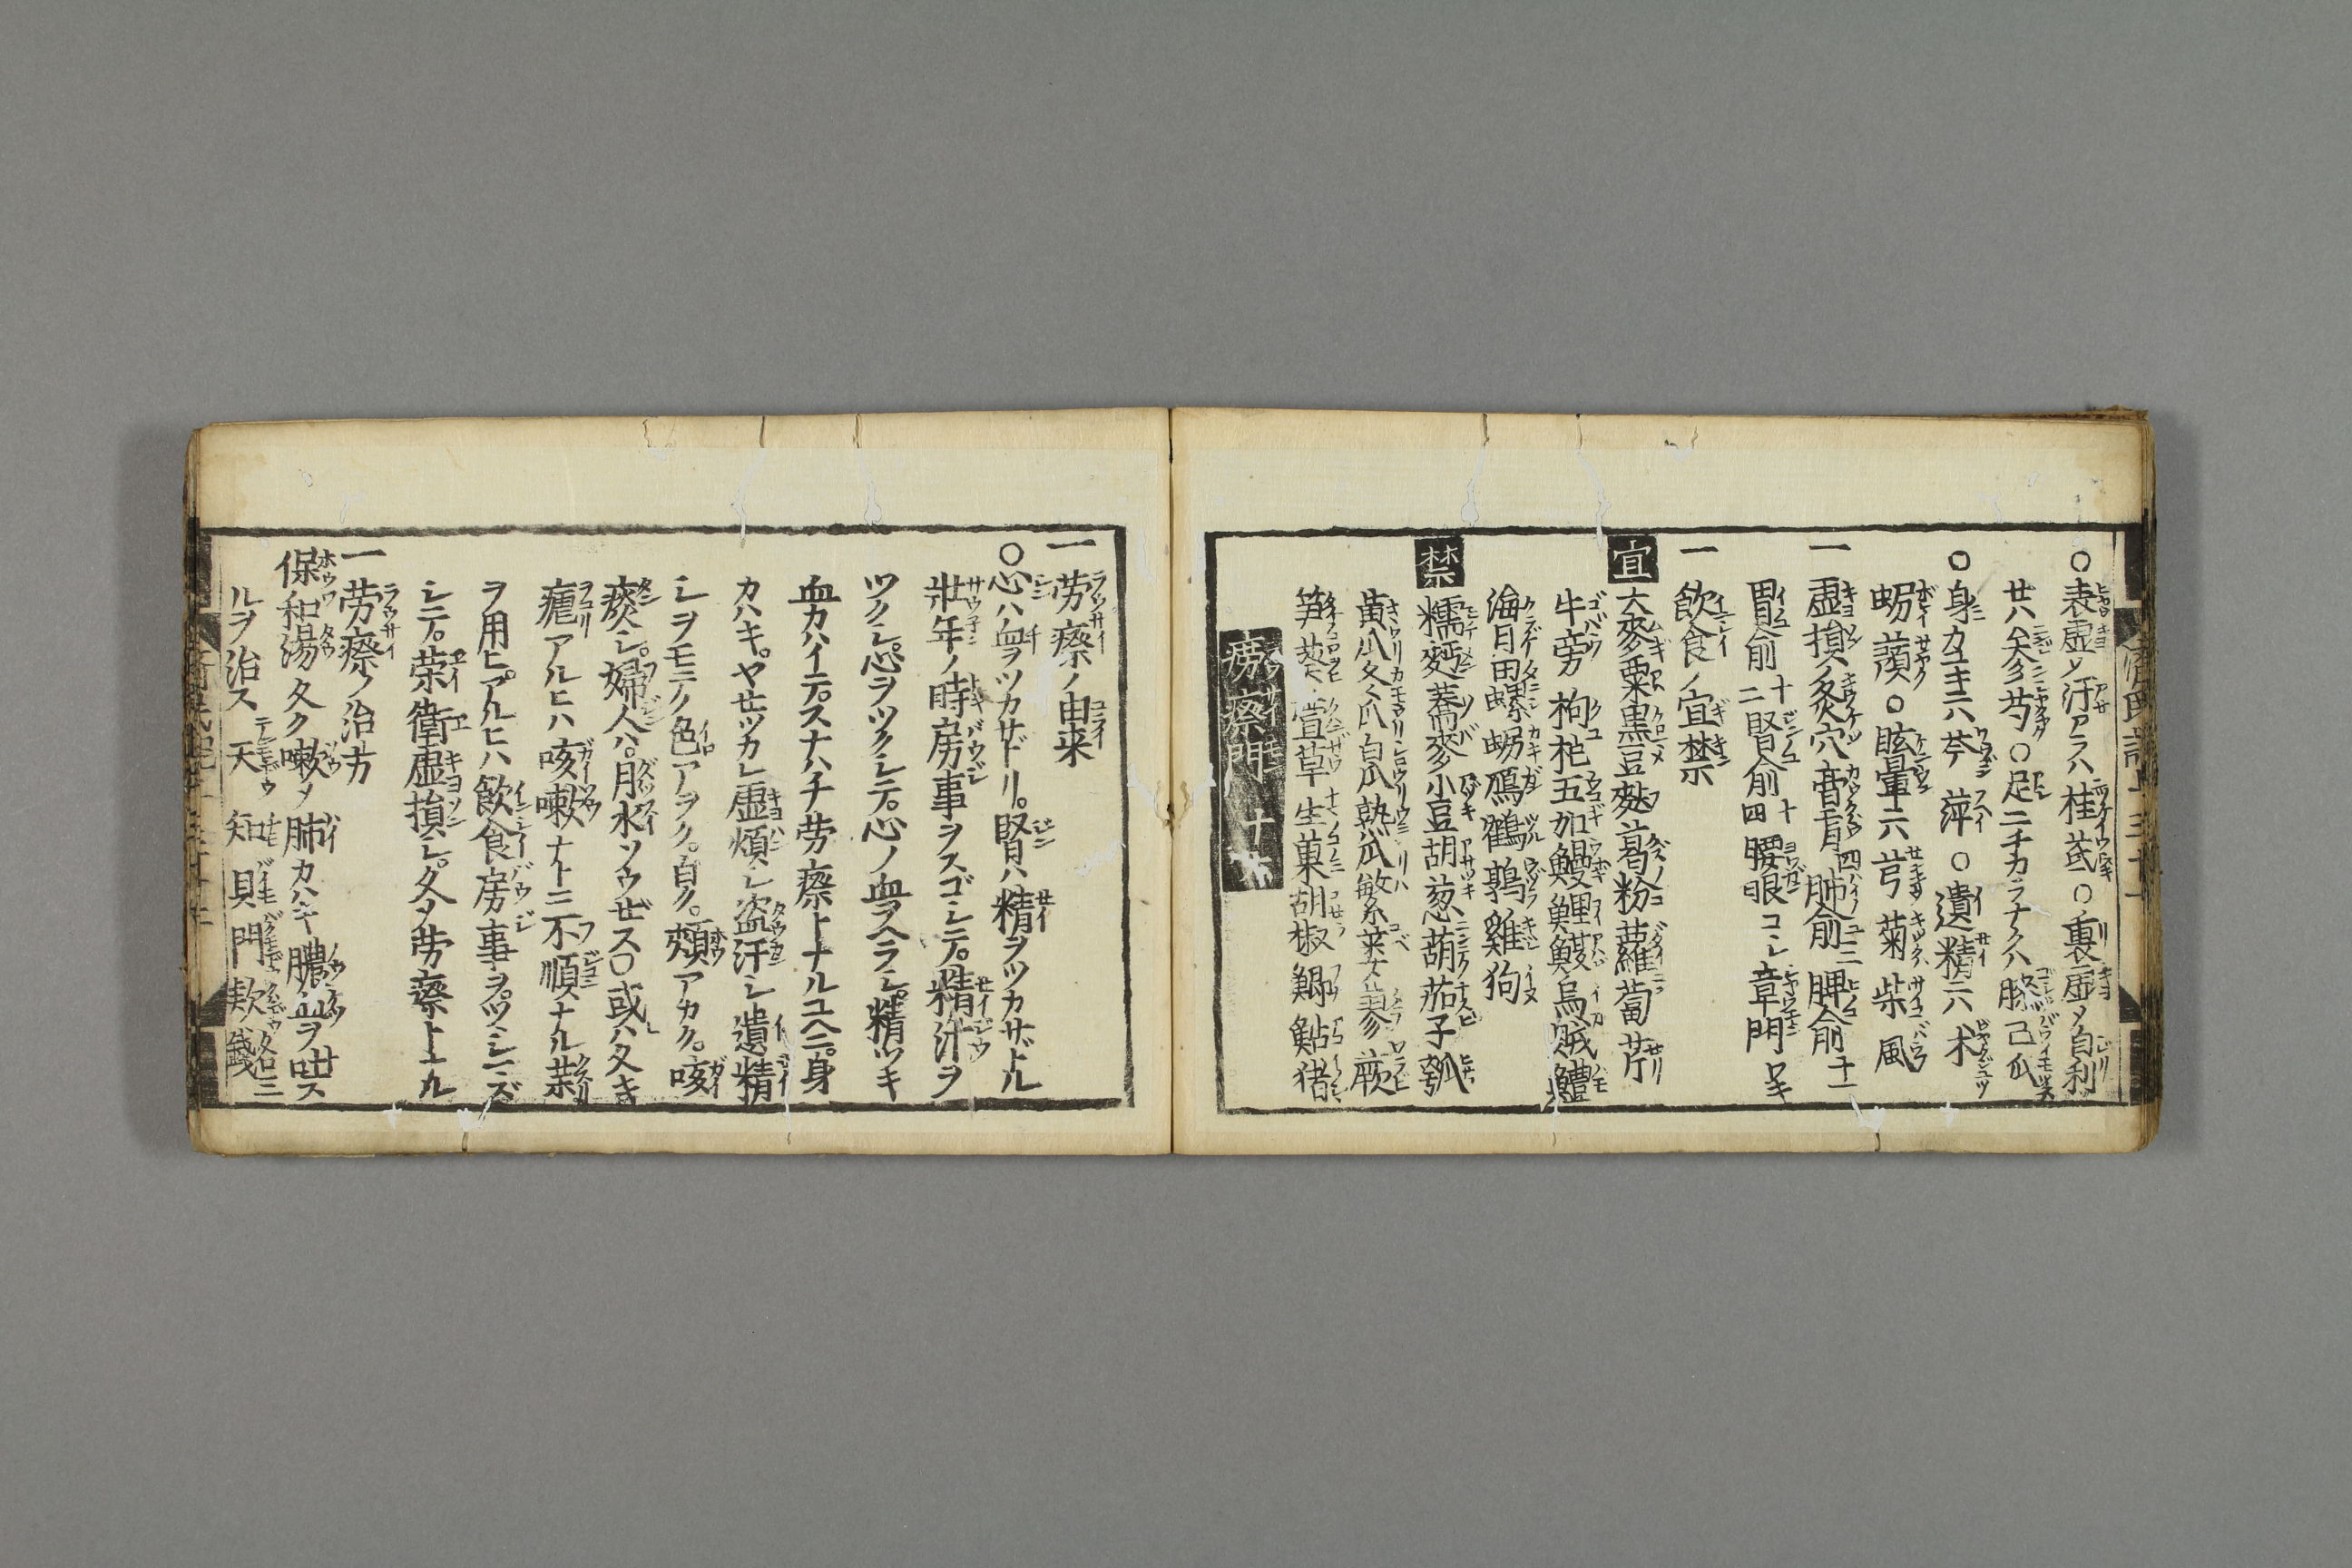 ○表虚メ汗アラハ桂茋○裏虚メ自利
廿ハ𠫵芍○足ニチカラナクハ膝己瓜
○身カユキニハ芩萍○遺精ニハ术
蛎䕷○眩暈ニハ芎菊柴風
一虚損ノ灸穴膏肓四肺俞三脾俞十一
胃俞十二腎俞十四腰眼コシ章門ワキ
一飲食ノ宜禁
宜大麥粟黒豆麩葛粉蘿蔔芹
牛旁枸杞五加鰻鯉鰒烏賊鱧
海月田螺蛎鴈鶴鶉雞狗
禁糯麪蕎麥小豆胡葱葫茄子瓠
黄瓜冬瓜白瓜熟瓜蓼蕨
笋葵萱草生菓胡椒鯽鮎猪
癆瘵門二十六
一労瘵ノ由来
○心ハ血ヲツカサドリ。腎ハ精ヲツカサドル
壮年ノ時房事ヲスゴシテ。精汁ヲ
ツクシ。心ヲツクシテ。心ノ血ヲヘラシ。精ツキ
血カハイテ。スナハチ労瘵トナルユヘニ。身
カハキ。ヤセツカレ虚煩シ盗汗シ遺精
シヲモテノ色アヲク。白ク。頬アカク。咳
痰シ。婦人ハ。月水ツウゼス○或ハ久キ
瘧アルヒハ咳嗽ナトニ不順ナル薬
ヲ用ヒ。アルヒハ飲食房事ヲ。ツヽシマズ
シテ。栄衛虚損シ。久メ労瘵トナル
一労瘵ノ治方
保和湯久ク嗽メ肺カハキ膿血ヲ吐ス
ルヲ治ス天知貝門欵各三銭